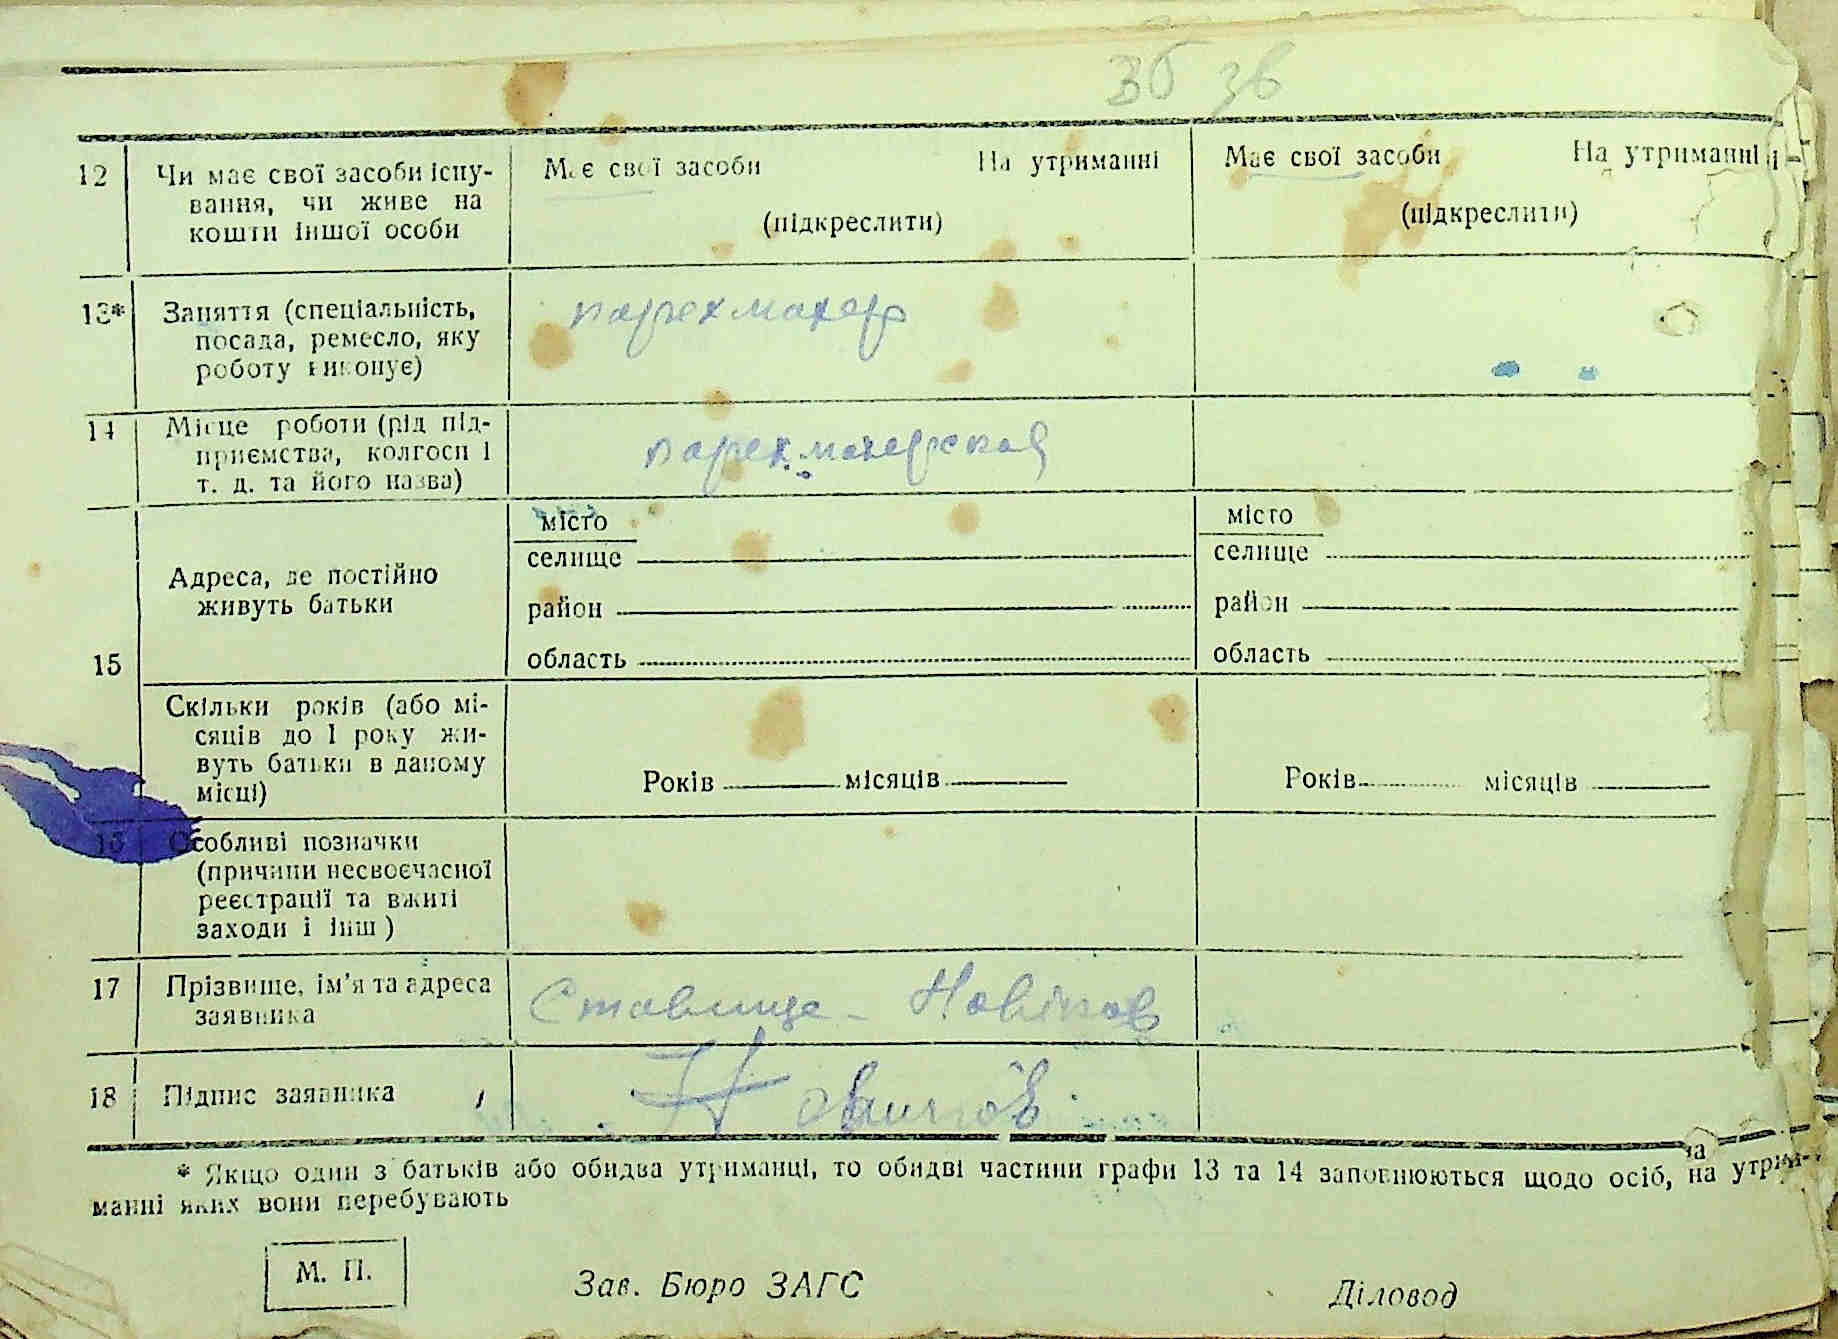 36 36
12 Чи має свої засоби існу- Має свої засоби На утриманні Має свої засоби На утриманні
вання, чи живе на (підкреслити) (підкреслити)
кошти іншої особи
13* Заняття (спеціальність, парехмахер
посада, ремесло, яку
роботу виконує)
14 Місце роботи (рід під- парехмахерская
приємства, колгосп і
т. д. та його назва)
15 Адреса, де постійно
живуть батьки
місто місто
селище селище
район район
область область
Скільки років (або мі-
сяців до 1 року жи-
вуть батьки в даному
місці) Років місяців Років місяців
16 Особливі позначки
(причини несвоєчасної
реєстрації та вжиті
заходи і інш)
17 Прізвище, ім'я та адреса
заявника Ставище - Новіков
18 Підпис заявника Новиков
* Якщо один з батьків або обидва утриманці, то обидві частини графи 13 та 14 заповнюються щодо осіб, на утри-
манні яких вони перебувають
М. П. Зав. Бюро ЗАГС Діловод